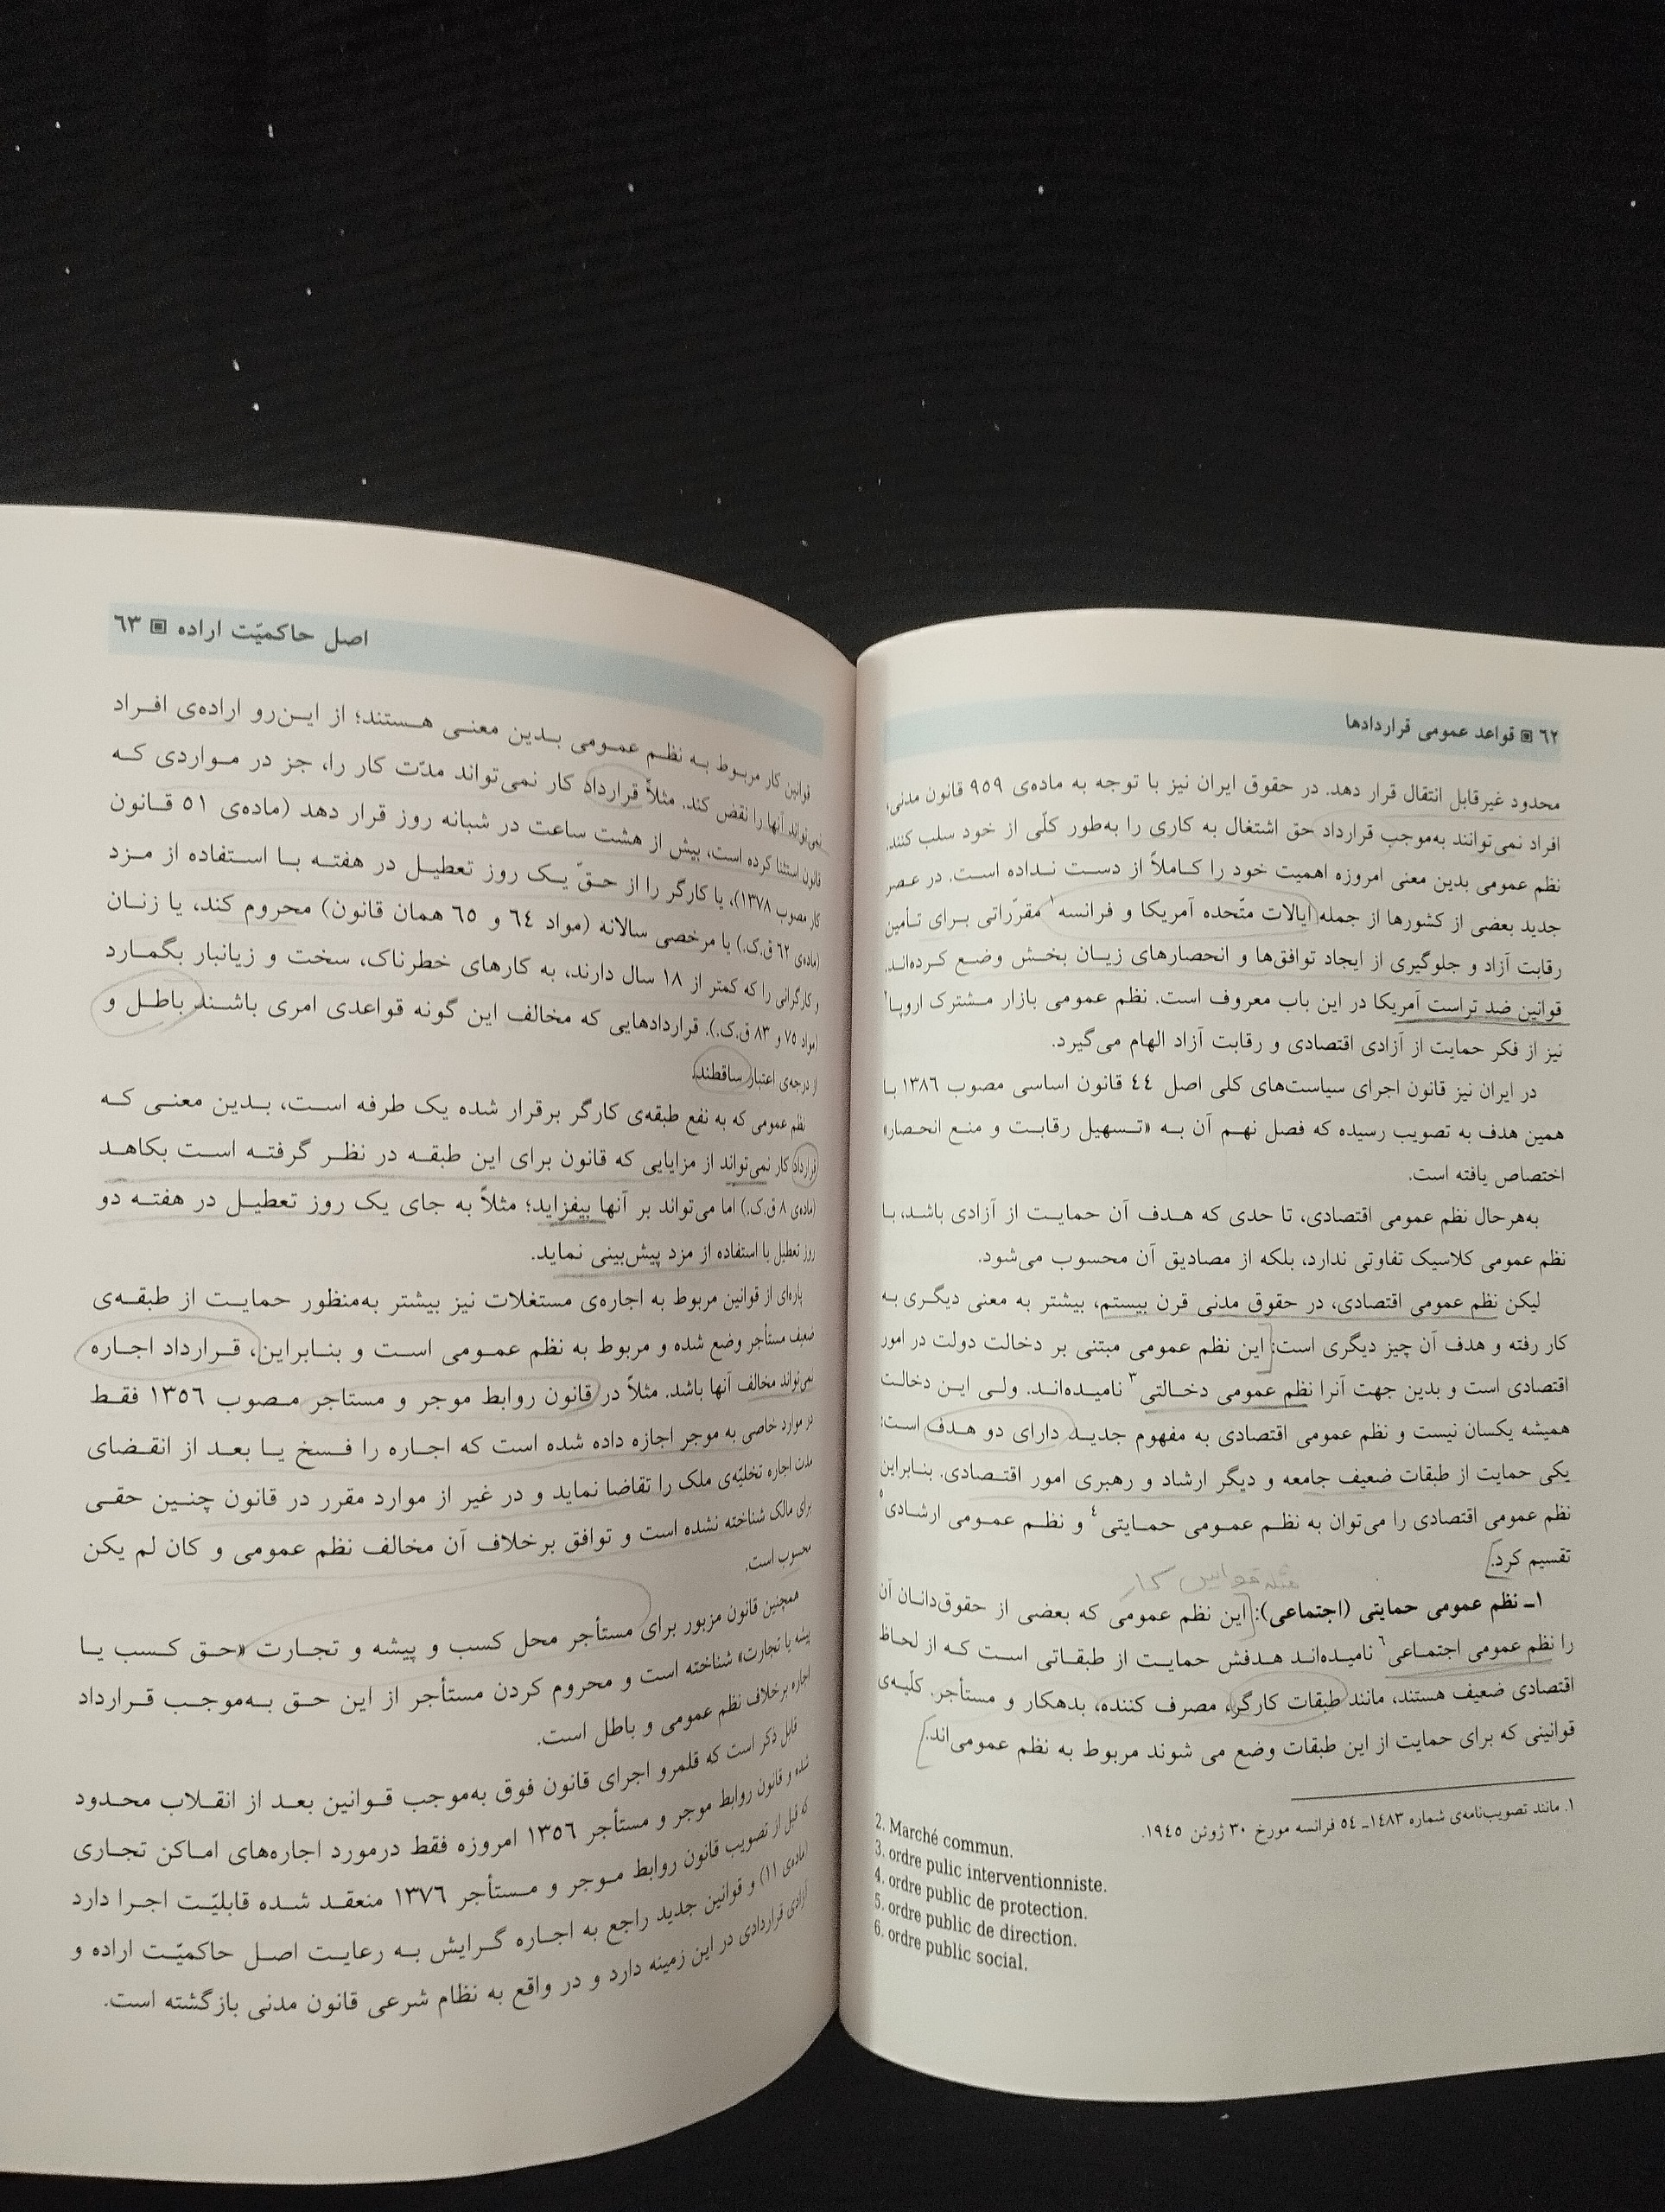 ٦٢ قواعد عمومی قراردادها
محدود غیرقابل انتقال قرار دهد. در حقوق ایران نیز با توجه به ماده‌ی ٩٥٩ قانون مدنی،
افراد نمی‌توانند به‌موجب قرارداد حق اشتغال به کاری را به‌طور کلّی از خود سلب کنند.
نظم عمومی بدین معنی امروزه اهمیت خود را کاملاً از دست نداده است. در عصر
جدید بعضی از کشورها از جمله ایالات متّحده آمریکا و فرانسه١ مقرّراتی برای تأمین
رقابت آزاد و جلوگیری از ایجاد توافق‌ها و انحصارهای زیان بخش وضع کرده‌اند.
قوانین ضد تراست آمریکا در این باب معروف است. نظم عمومی بازار مشترک اروپا٢
نیز از فکر حمایت از آزادی اقتصادی و رقابت آزاد الهام می‌گیرد.
در ایران نیز قانون اجرای سیاست‌های کلی اصل ٤٤ قانون اساسی مصوب ١٣٨٦ با
همین هدف به تصویب رسیده که فصل نهم آن به «تسهیل رقابت و منع انحصار»
اختصاص یافته است.
به‌هرحال نظم عمومی اقتصادی، تا حدی که هدف آن حمایت از آزادی باشد، با
نظم عمومی کلاسیک تفاوتی ندارد، بلکه از مصادیق آن محسوب می‌شود.
لیکن نظم عمومی اقتصادی، در حقوق مدنی قرن بیستم، بیشتر به معنی دیگری به
کار رفته و هدف آن چیز دیگری است: این نظم عمومی مبتنی بر دخالت دولت در امور
اقتصادی است و بدین جهت آنرا نظم عمومی دخالتی٣ نامیده‌اند. ولی این دخالت
همیشه یکسان نیست و نظم عمومی اقتصادی به مفهوم جدید دارای دو هدف است:
یکی حمایت از طبقات ضعیف جامعه و دیگر ارشاد و رهبری امور اقتصادی. بنابراین
نظم عمومی اقتصادی را می‌توان به نظم عمومی حمایتی٤ و نظم عمومی ارشادی٥
تقسیم کرد.
مثله قوانین کار
١ـ نظم عمومی حمایتی (اجتماعی): این نظم عمومی که بعضی از حقوق‌دانان آن
را نظم عمومی اجتماعی٦ نامیده‌اند هدفش حمایت از طبقاتی است که از لحاظ
اقتصادی ضعیف هستند، مانند طبقات کارگر، مصرف کننده، بدهکار و مستأجر. کلّیه‌ی
قوانینی که برای حمایت از این طبقات وضع می شوند مربوط به نظم عمومی‌اند.
١. مانند تصویب‌نامه‌ی شماره ١٤٨٣ـ ٥٤ فرانسه مورخ ٣٠ ژوئن ١٩٤٥.
2. Marché commun.
3. ordre pulic interventionniste.
4. ordre public de protection.
5. ordre public de direction.
6. ordre public social.
اصل حاکمیّت اراده ٦٣
قوانین کار مربوط به نظم عمومی بدین معنی هستند؛ از این‌رو اراده‌ی افراد
نمی‌تواند آنها را نقض کند. مثلاً قرارداد کار نمی‌تواند مدّت کار را، جز در مواردی که
قانون استثنا کرده است، بیش از هشت ساعت در شبانه روز قرار دهد (ماده‌ی ٥١ قانون
کار مصوب ١٣٧٨)، یا کارگر را از حقّ یک روز تعطیل در هفته با استفاده از مزد
(ماده‌ی ٦٢ ق.ک.) یا مرخصی سالانه (مواد ٦٤ و ٦٥ همان قانون) محروم کند، یا زنان
و کارگرانی را که کمتر از ١٨ سال دارند، به کارهای خطرناک، سخت و زیانبار بگمارد
(مواد ٧٥ و ٨٣ ق.ک.). قراردادهایی که مخالف این گونه قواعدی امری باشند باطل و
از درجه‌ی اعتبار ساقطند.
نظم عمومی که به نفع طبقه‌ی کارگر برقرار شده یک طرفه است، بدین معنی که
قرارداد کار نمی‌تواند از مزایایی که قانون برای این طبقه در نظر گرفته است بکاهد
(ماده‌ی ٨ ق.ک.) اما می‌تواند بر آنها بیفزاید؛ مثلاً به جای یک روز تعطیل در هفته دو
روز تعطیل با استفاده از مزد پیش‌بینی نماید.
پاره‌ای از قوانین مربوط به اجاره‌ی مستغلات نیز بیشتر به‌منظور حمایت از طبقه‌ی
ضعیف مستأجر وضع شده و مربوط به نظم عمومی است و بنابراین، قرارداد اجاره
نمی‌تواند مخالف آنها باشد. مثلاً در قانون روابط موجر و مستاجر مصوب ١٣٥٦ فقط
در موارد خاصی به موجر اجازه داده شده است که اجاره را فسخ یا بعد از انقضای
مدت اجاره تخلیّه‌ی ملک را تقاضا نماید و در غیر از موارد مقرر در قانون چنین حقی
برای مالک شناخته نشده است و توافق برخلاف آن مخالف نظم عمومی و کان لم یکن
محسوب است.
همچنین قانون مزبور برای مستأجر محل کسب و پیشه و تجارت «حق کسب یا
پیشه یا تجارت» شناخته است و محروم کردن مستأجر از این حق به‌موجب قرارداد
اجاره برخلاف نظم عمومی و باطل است.
قابل ذکر است که قلمرو اجرای قانون فوق به‌موجب قوانین بعد از انقلاب محدود
شده و قانون روابط موجر و مستأجر ١٣٥٦ امروزه فقط درمورد اجاره‌های اماکن تجاری
که قبل از تصویب قانون روابط موجر و مستأجر ١٣٧٦ منعقد شده قابلیّت اجرا دارد
(ماده‌ی ١١) و قوانین جدید راجع به اجاره گرایش به رعایت اصل حاکمیّت اراده و
آزادی قراردادی در این زمینه دارد و در واقع به نظام شرعی قانون مدنی بازگشته است.